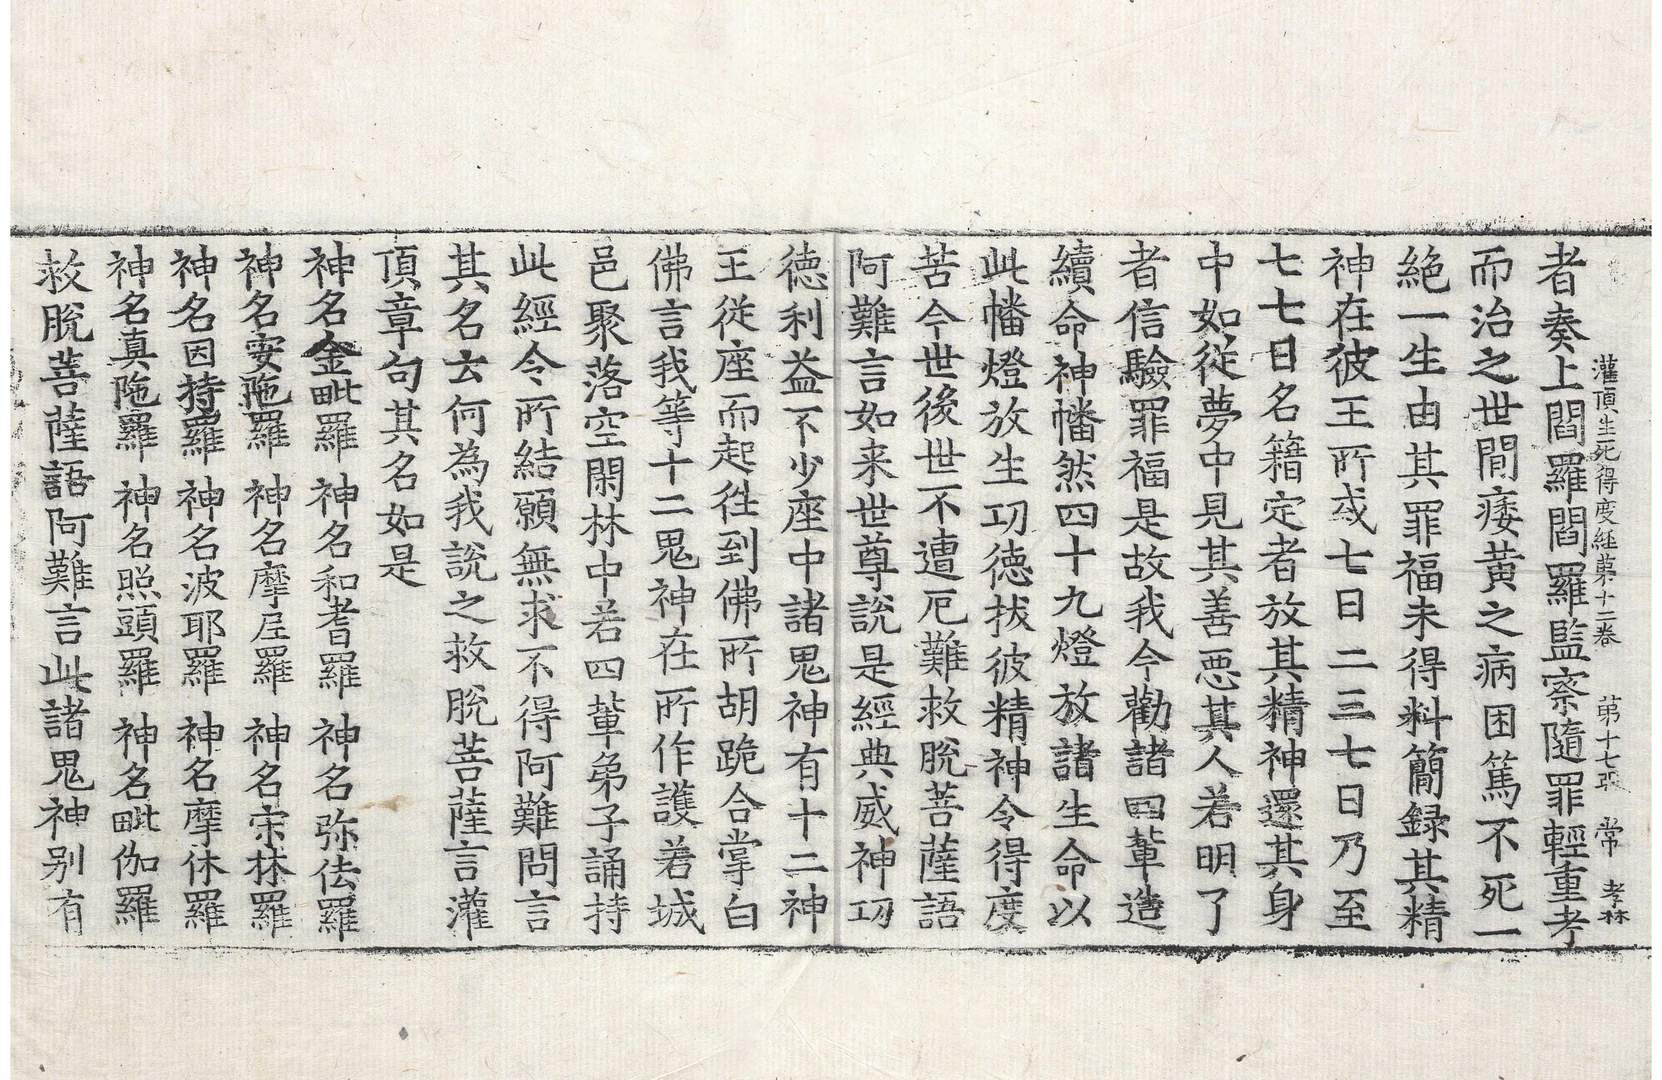 灌頂生死得度經第十二卷 第十七張 常 孝林
者奏上閻羅閻羅監察隨罪輕重考
而治之世間痿黃之病困篤不死一
絕一生由其罪福未得料簡録其精
神在彼王所或七日二三七日乃至
七七日名籍定者放其精神還其身
中如從夢中見其善惡其人若明了
者信驗罪福是故我今勸諸四輩造
續命神幡然四十九燈放諸生命以
此幡燈放生功德拔彼精神令得度
苦今世後世不遭厄難救脫菩薩語
阿難言如来世尊說是經典威神功
德利益不少座中諸鬼神有十二神
王從座而起徃到佛所胡跪合掌白
佛言我等十二鬼神在所作護若城
邑聚落空閑林中若四輩弟子誦持
此經令所結願無求不得阿難問言
其名云何為我說之救脫菩薩言灌
頂章句其名如是
神名金毗羅 神名和耆羅 神名弥佉羅
神名安陁羅 神名摩尼羅 神名宋林羅
神名因持羅 神名波耶羅 神名摩休羅
神名真陁羅 神名照頭羅 神名毗伽羅
救脫菩薩語阿難言此諸鬼神別有